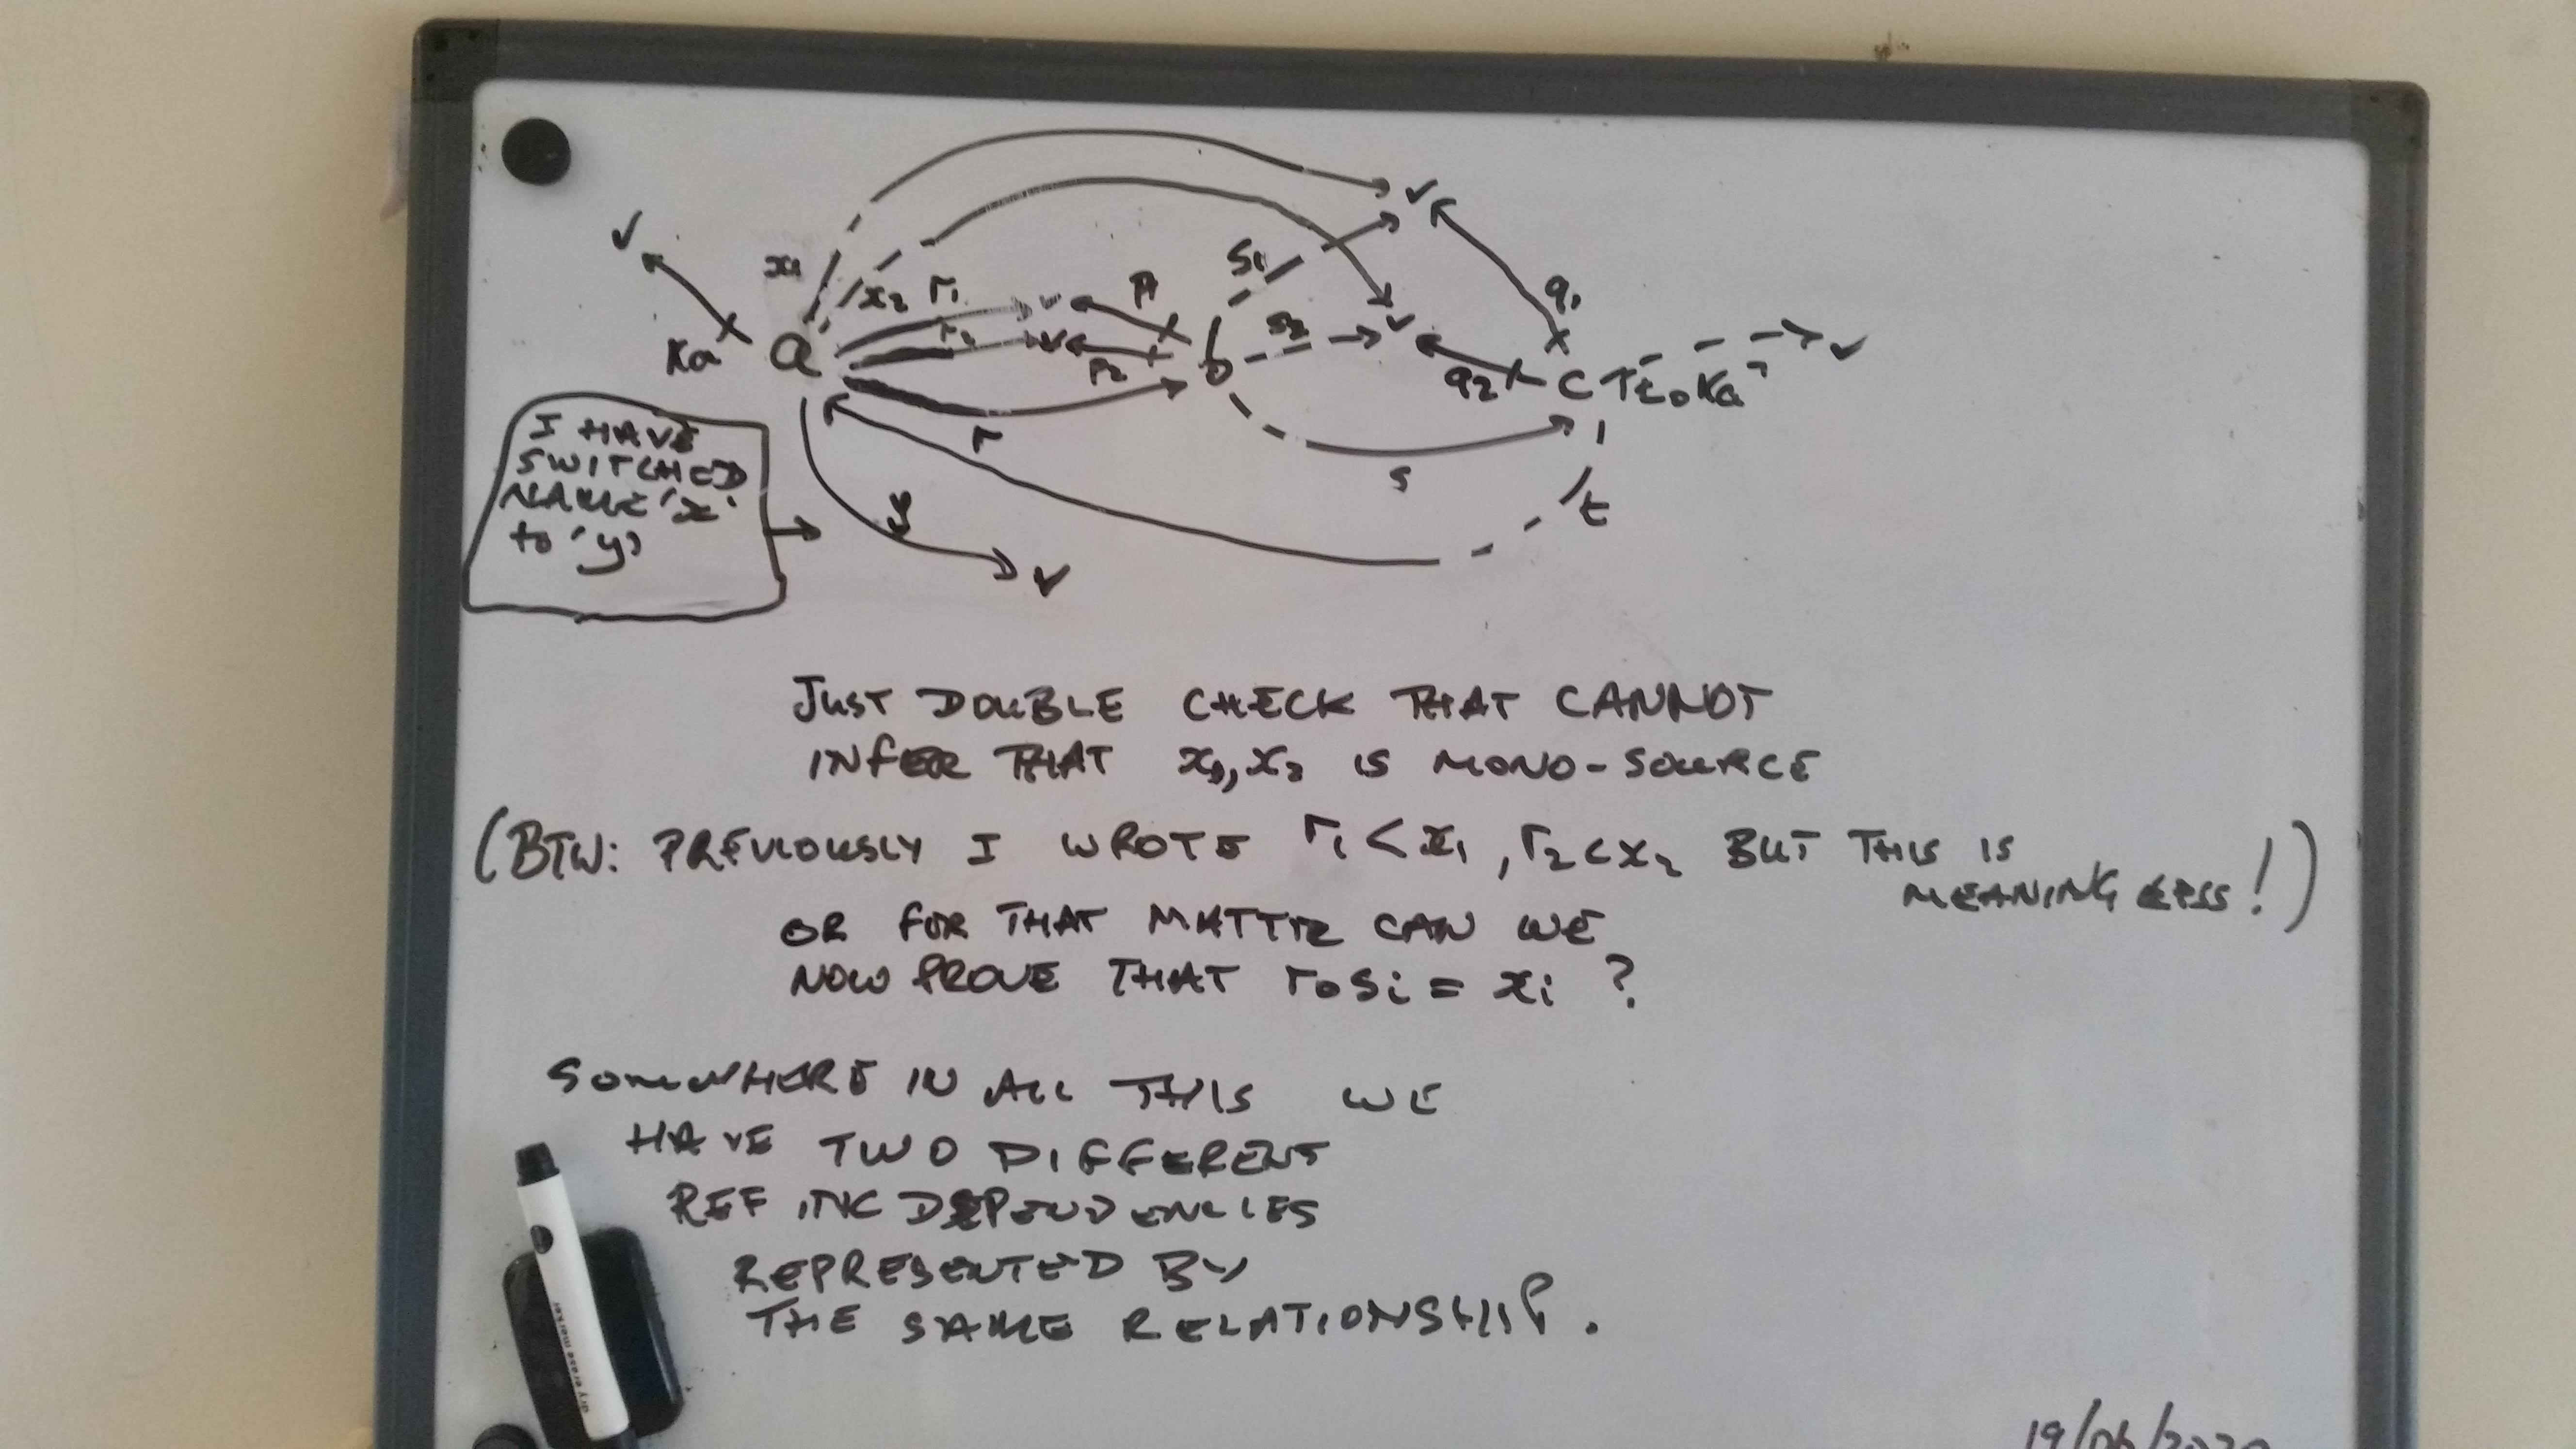 ✓
✓
x₁
x₂
r₁
r₂
✓
✓
p₁
p₂
s₁
s₂
✓
q₁
q₂
Ka
a
b
c
t∘Ka
✓
r
s
t
y
✓
I HAVE
SWITCHED
NAME 'x'
to 'y'
JUST DOUBLE CHECK THAT CANNOT
INFER THAT x₁,x₂ IS MONO-SOURCE
(BTW: PREVIOUSLY I WROTE r₁<x₁, r₂<x₂ BUT THIS IS
MEANINGLESS!)
OR FOR THAT MATTER CAN WE
NOW PROVE THAT r∘si = xi ?
SOMEWHERE IN ALL THIS WE
HAVE TWO DIFFERENT
REF INC DEPENDENCIES
REPRESENTED BY
THE SAME RELATIONSHIP.
dry erase marker